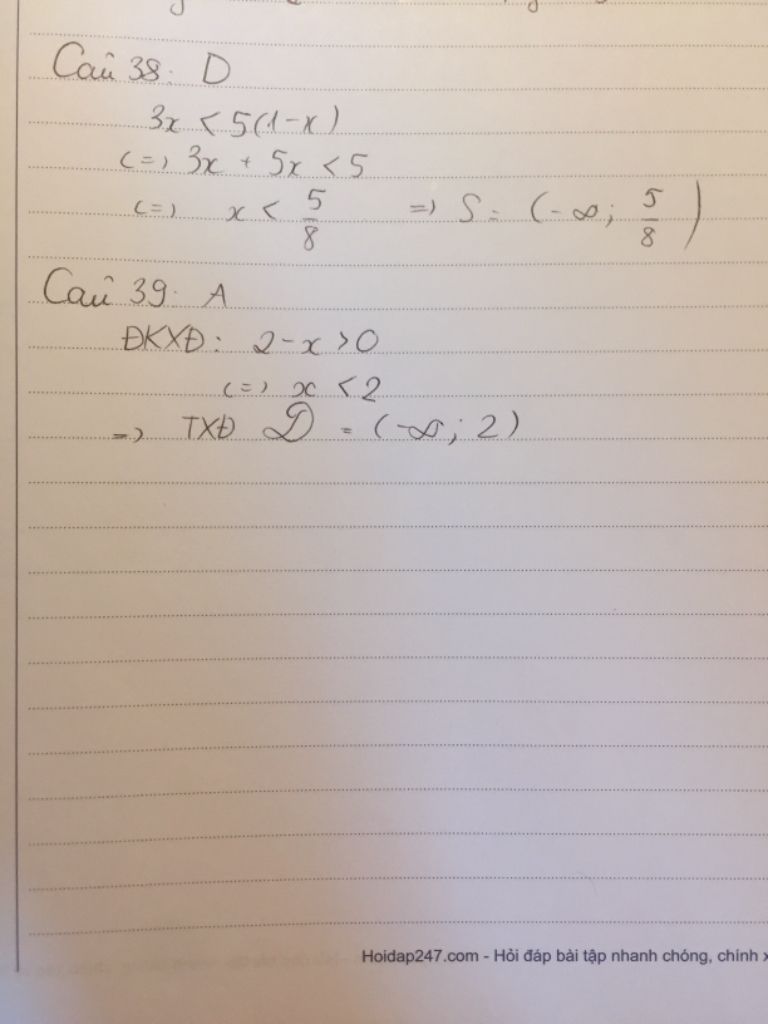 Câu 38: D
3x < 5(1-x)
(=) 3x + 5x < 5
(=) x < 5/8 => S = (-∞; 5/8)
Câu 39: A
ĐKXĐ: 2-x >0
(=) x <2
=> TXĐ D = (-∞; 2)
Hoidap247.com - Hỏi đáp bài tập nhanh chóng, chính x